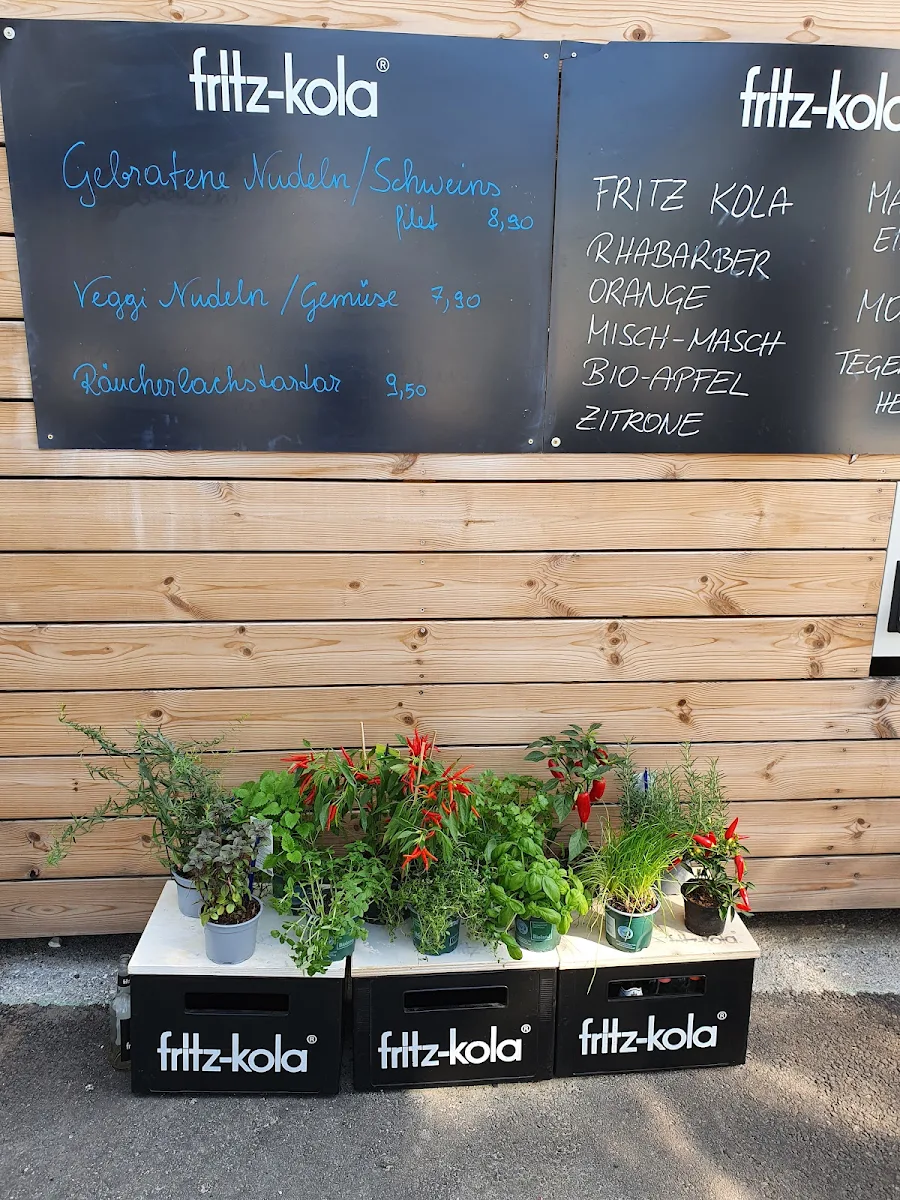 fritz-kola®
Gebratene Nudeln/Schweins
filet 8,90
Veggi Nudeln /Gemüse 7,90
Räucherlachstartar 9,50
fritz-kola
FRITZ KOLA
RHABARBER
ORANGE
MISCH-MASCH
BIO-APFEL
ZITRONE
MA
EI
MO
TEGE
HE
fritz-kola®
fritz-kola®
fritz-kola®